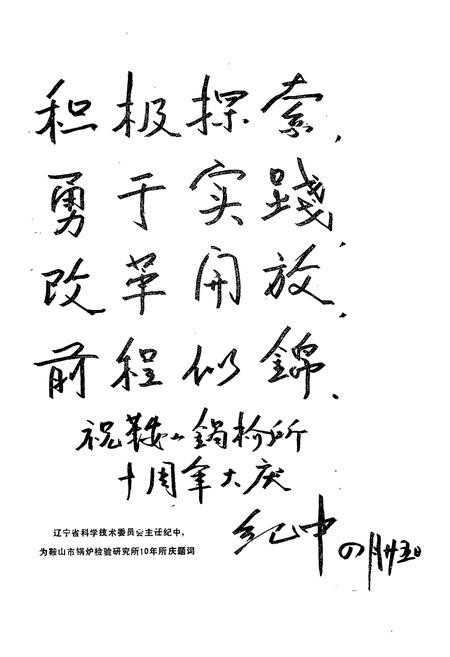 积极探索,
勇于实践,
改革开放,
前程似錦.
祝鞍山锅检所
十周年大庆
纪中
辽宁省科学技术委员会主任纪中,
为鞍山市锅炉检验研究所10年所庆题词